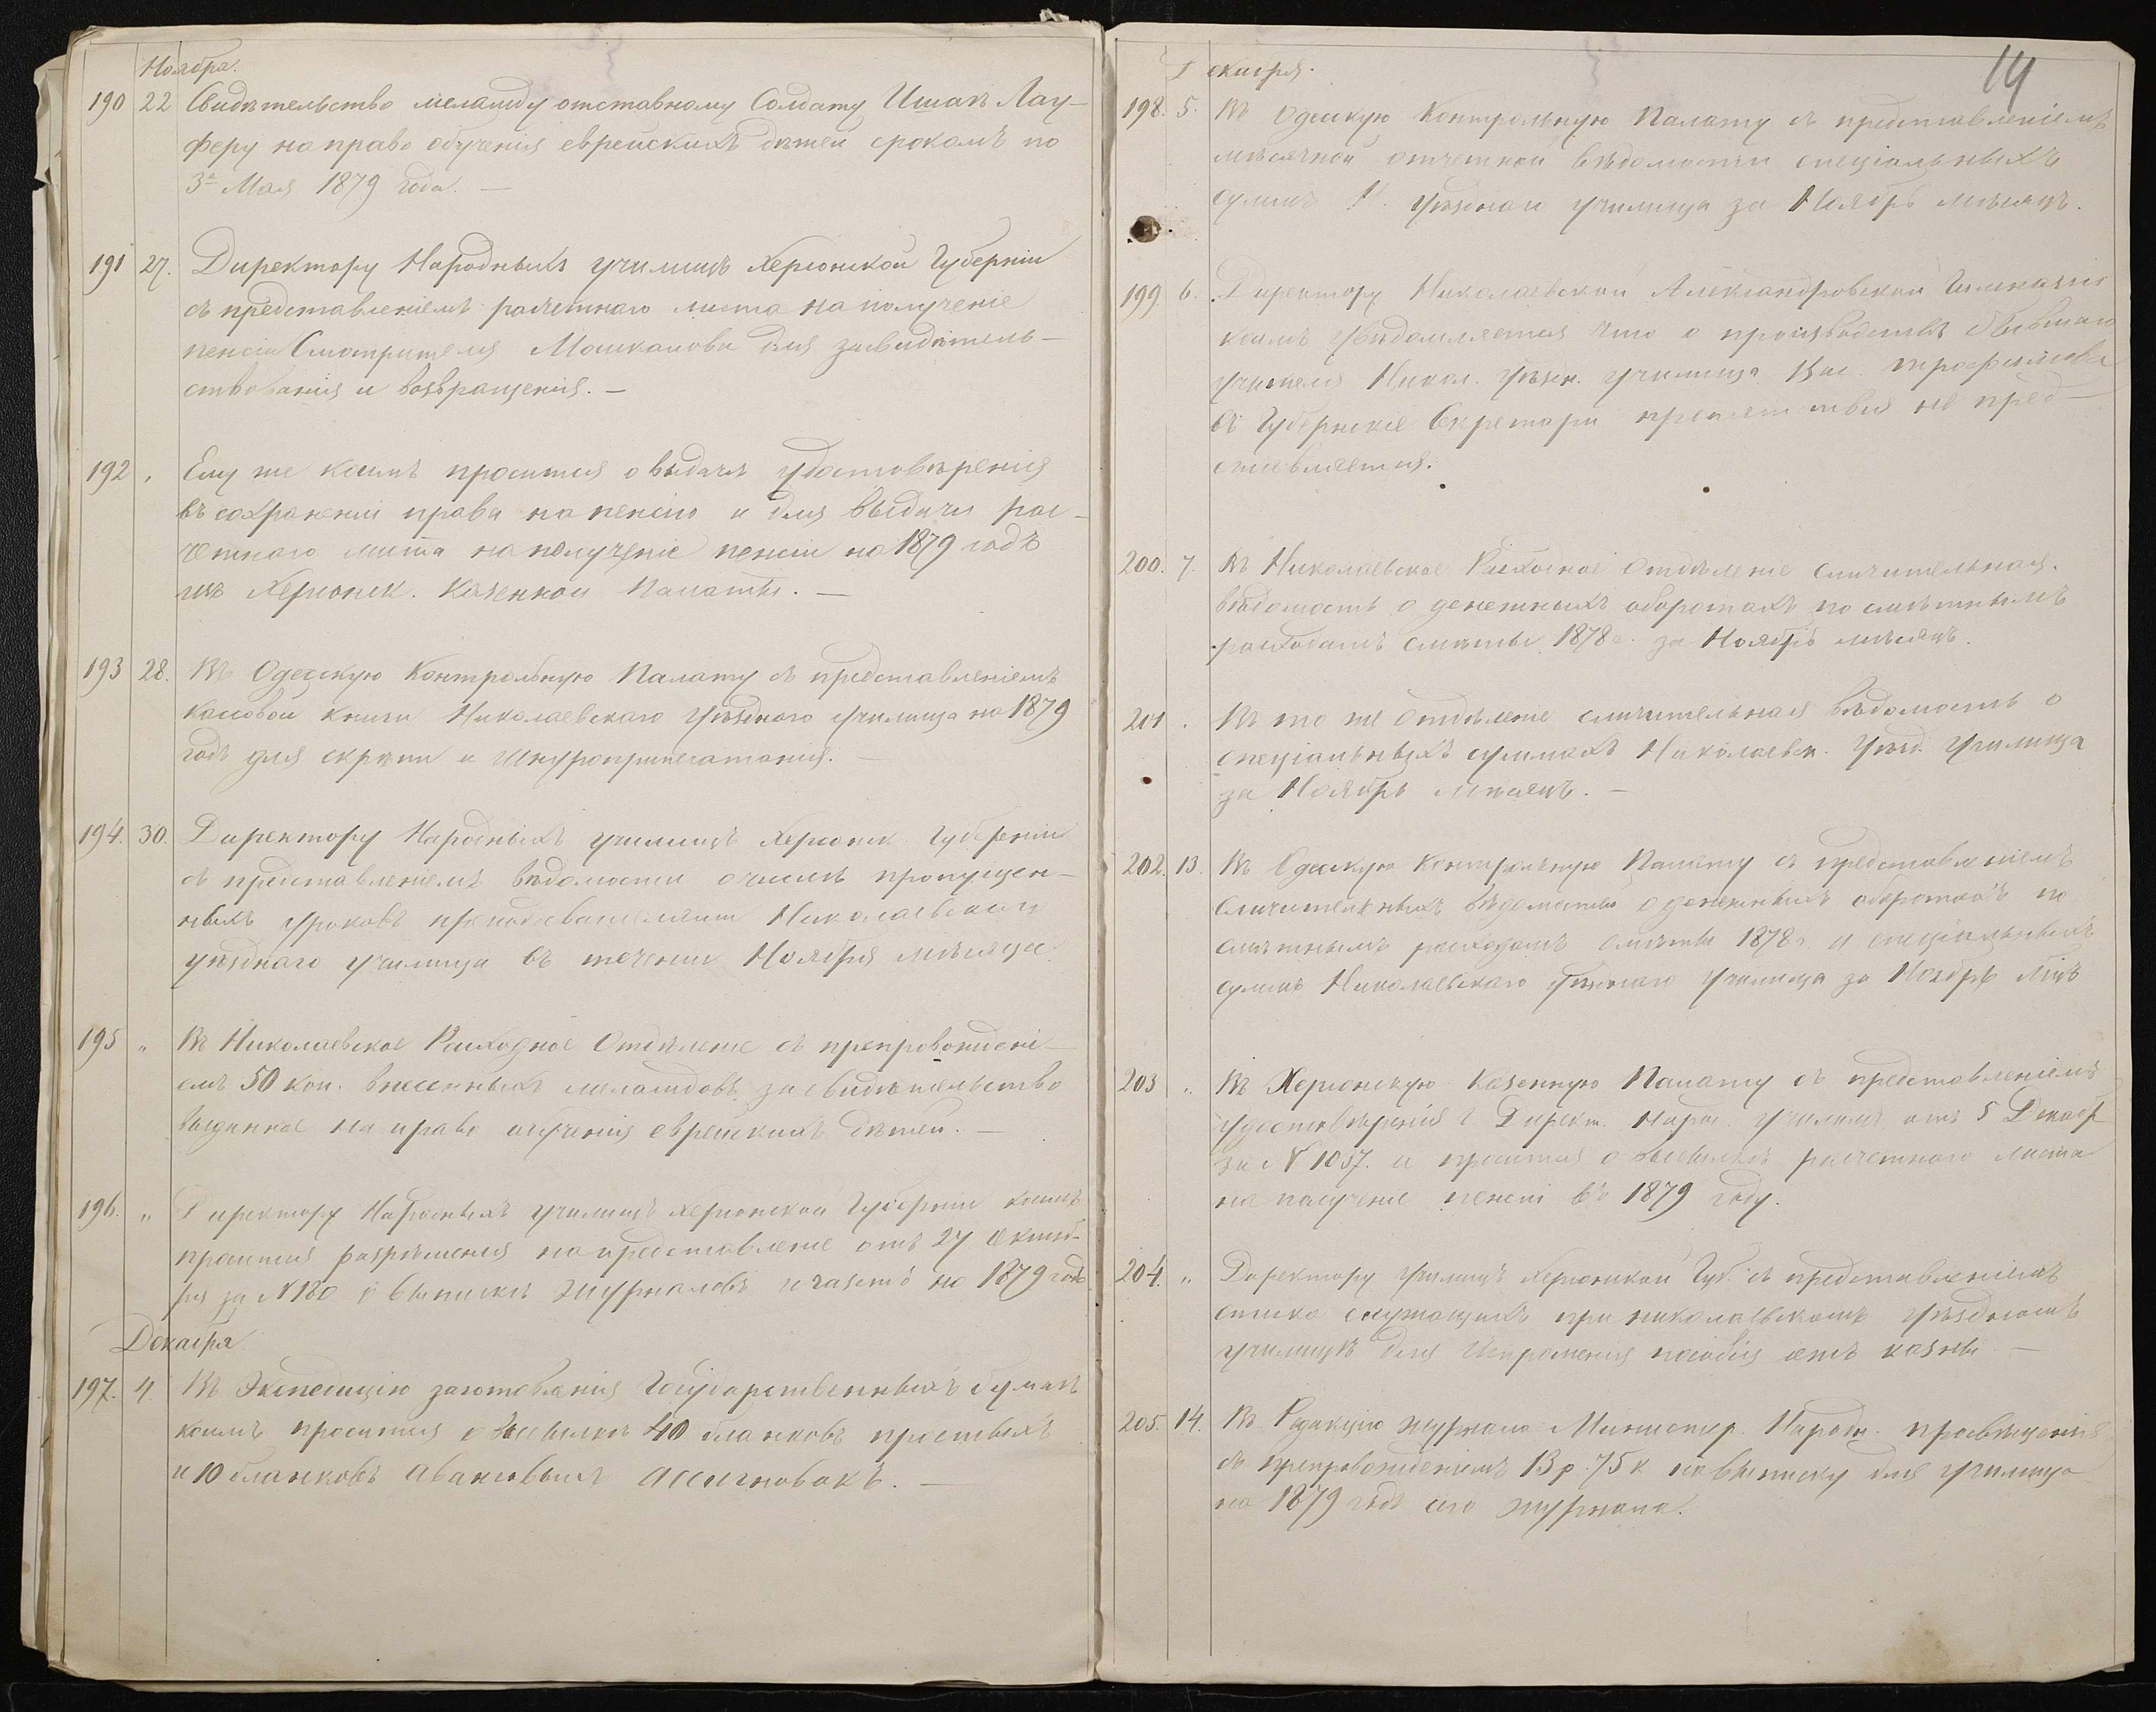 Ноября.
190 22 Свидѣтельство меламду отставному Солдату Ицшак Лау-
феру на право обученія еврейскихъ дѣтей срокомъ по
3е Мая 1879 года. —
191 27. Директору Народныхъ училищъ Херсонской Губерніи
съ представленіемъ расчетнаго листа на полученіе
пенсіи Смотрителя Мошкалова для засвидѣтель-
ствованія и возвращенія. —
192 " Ему же коимъ просится о выдачѣ удостовѣренія
въ сохраненіи права на пенсію и для выдачи рас-
четнаго листа на полученіе пенсіи на 1879 годъ
изъ Херсонск. Казенной Палаты. —
193 28. Въ Одесскую Контрольную Палату съ представленіемъ
кассовой книги Николаевскаго уѣзднаго училища на 1879
годъ для скрѣпы и шнуроприпечатанія. —
194. 30. Директору Народныхъ училищъ Херсонск. Губерніи
съ представленіемъ вѣдомости о числѣ пропущен-
ныхъ уроковъ преподавателями Николаевскаго
уѣзднаго училища въ теченіи Ноября мѣсяца.
195 " Въ Николаевское Расходное Отдѣленіе съ препровожденi-
емъ 50 коп. внесенныхъ меламдовъ за свидѣтельство
выданное на право обученія еврейскихъ дѣтей. —
196. " Директору Народныхъ училищъ Херсонской Губерніи коимъ
просится разрѣшенія на представленіе отъ 27 Октяб-
ря за N 180 о выпискѣ журналовъ и газетъ на 1879 годъ
Декабря
197. 4. Въ Экспедицію заготовленія Государственныхъ бумагъ
коимъ просится о высылкѣ 40 бланковъ простыхъ
и 10 бланковъ авансовыхъ ассигновокъ. —
14
Декабря.
198. 5. Въ Одесскую Контрольную Палату съ представленіемъ
мѣсячной отчетной вѣдомости спеціальныхъ
суммъ Н. уѣзднаго училища за Ноябрь мѣсяцъ.
199 6. Директору Николаевской Александровской Гимназіи
коимъ увѣдомляется что о производствѣ бывшаго
учителя Никол. уѣздн. училища Вас. Трофимова
въ Губернскіе Секретари препятствія не пред-
ставляется.
200. 7. Въ Николаевское Расходное Отдѣленіе сличительная
вѣдомость о денежныхъ оборотахъ по смѣтнымъ
расходамъ смѣты 1878 г. за Ноябрь мѣсяцъ.
201 . Въ то же Отдѣленіе сличительная вѣдомость о
спеціальныхъ суммахъ Николаевск. уѣзд. училища
за Ноябрь мѣсяцъ. —
202. 13. Въ Одесскую Контрольную Палату съ представленіемъ
сличительныхъ вѣдомостей о денежныхъ оборотахъ по
смѣтнымъ расходамъ смѣты 1878 г. и спеціальныхъ
суммъ Николаевскаго уѣзднаго училища за Ноябрь мѣц
203 " Въ Херсонскую Казенную Палату съ представленіемъ
удостовѣренія г Директ. Народ. училищъ отъ 5 Декабр
за N 1057. и просится о высылкѣ расчетнаго листа
на полученіе пенсіи въ 1879 году.
204. " Директору училищъ Херсонской Губ. съ представленіемъ
списка служащихъ при николаевскомъ уѣздномъ
училищѣ для испрошенія пособія отъ казны —
205. 14. Въ Редакцію журнала Министер. Народн. просвѣщенія
съ препровожденіемъ 13 р. 75 к на выписку для училища
на 1879 годъ сего журнала.